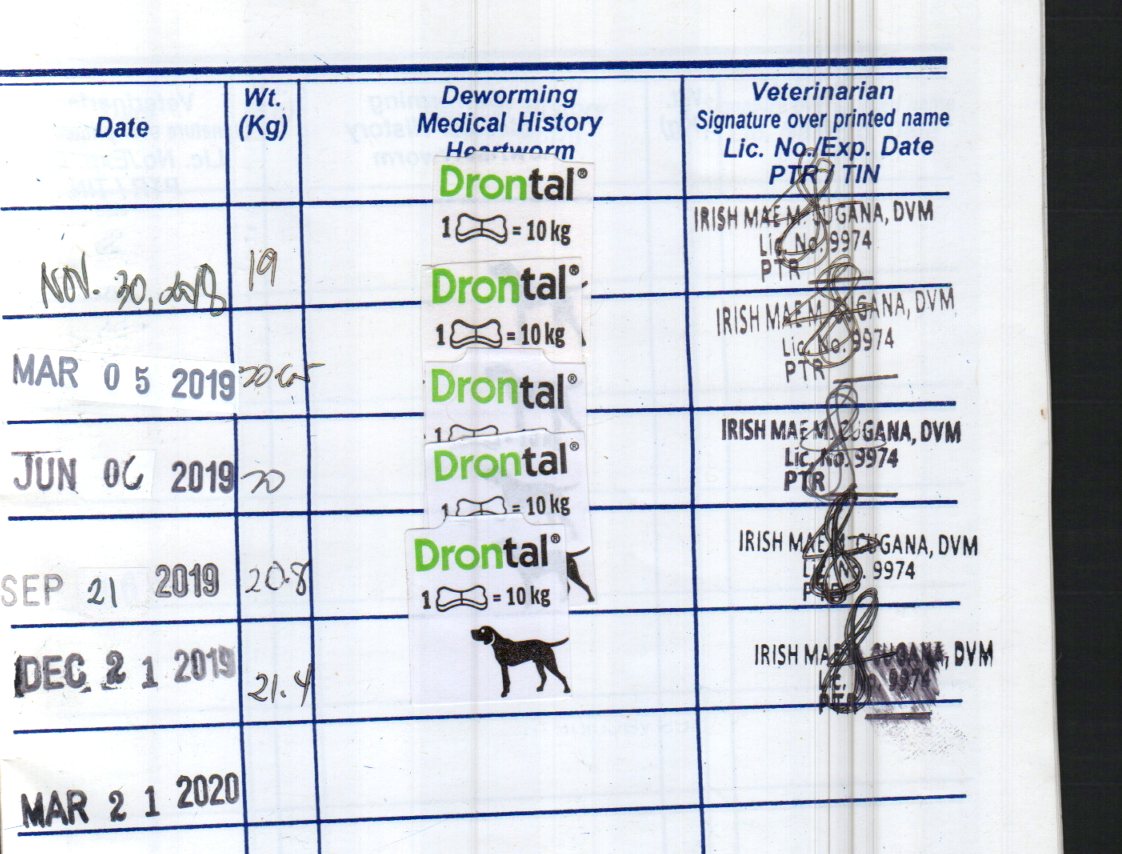 Date
Wt.
(Kg)
Deworming
Medical History
Heartworm
Veterinarian
Signature over printed name
Lic. No./Exp. Date
PTR / TIN
NOV. 30, 2018
19
Drontal®
1 = 10 kg
IRISH MAE M. CUGANA, DVM
Lic. No. 9974
PTR
MAR 05 2019
Drontal®
1 = 10 kg
IRISH MAE M. CUGANA, DVM
Lic. No. 9974
PTR
JUN 06 2019
20
Drontal®
IRISH MAE M. CUGANA, DVM
Lic. No. 9974
PTR
SEP 21 2019
20.8
Drontal®
1 = 10 kg
IRISH MAE M. CUGANA, DVM
Lic. No. 9974
PTR
DEC 21 2019
21.4
Drontal®
1 = 10 kg
IRISH MAE M. CUGANA, DVM
Lic. No. 9974
PTR
MAR 21 2020